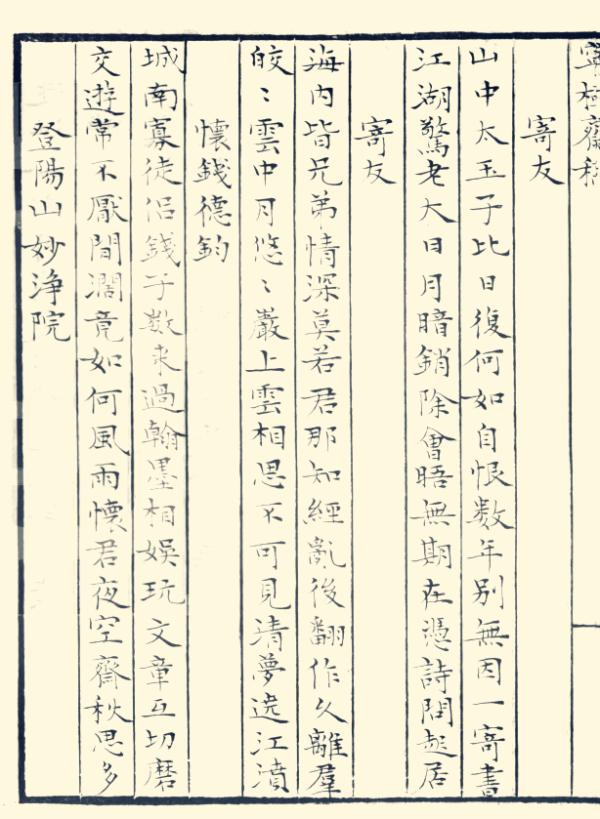 寧極齋稿
寄友
山中太玉子比日復何如自恨数年别無因一寄書
江湖驚老大日月暗銷除會晤無期在憑詩問起居
寄友
海内皆兄弟情深莫若君那知經亂後翻作久離羣
皎〻雲中月悠〻巖上雲相思不可見清夢遶江濆
懷錢德鈞
城南寡徒侣錢子数来過翰墨相娯玩文章互切磨
交遊常不厭間濶竟如何風雨懷君夜空齋秋思多
登陽山妙浄院